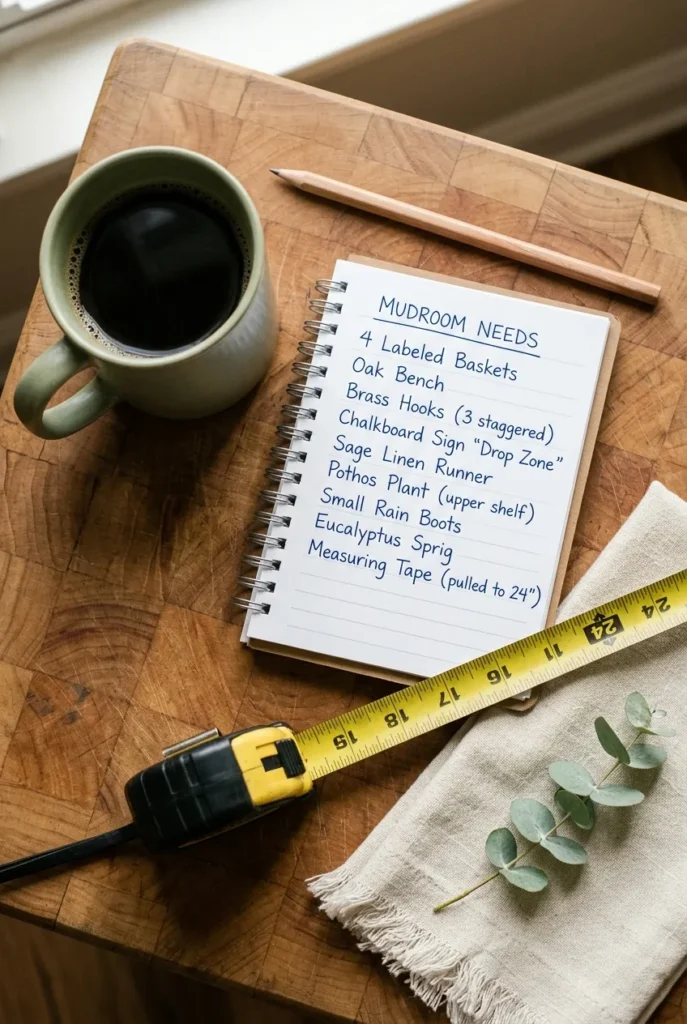 MUDROOM NEEDS
4 Labeled Baskets
Oak Bench
Brass Hooks (3 staggered)
Chalkboard Sign "Drop Zone"
Sage Linen Runner
Pothos Plant (upper shelf)
Small Rain Boots
Eucalyptus Sprig
Measuring Tape (pulled to 24")
19 18 17 16 11 24 24